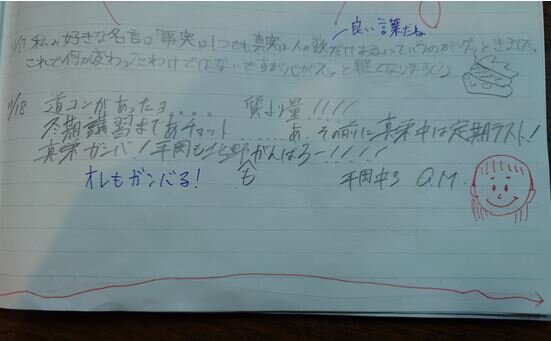 良い言葉だね
11/17 私の好きな名言は「事実は1つでも真実は人の数だけある」っていうのがグッときました。
これで何が変わるってわけではないですが心がスッと軽くなります
11/18 道コンがあったョ... 質より量!!!!
冬期講習まであチョット......あ、その前に真栄中は定期テスト!
真栄ガンバ!平岡も北野もがんばろー!!!!
オレもガンバる! 平岡中3 Q.M.